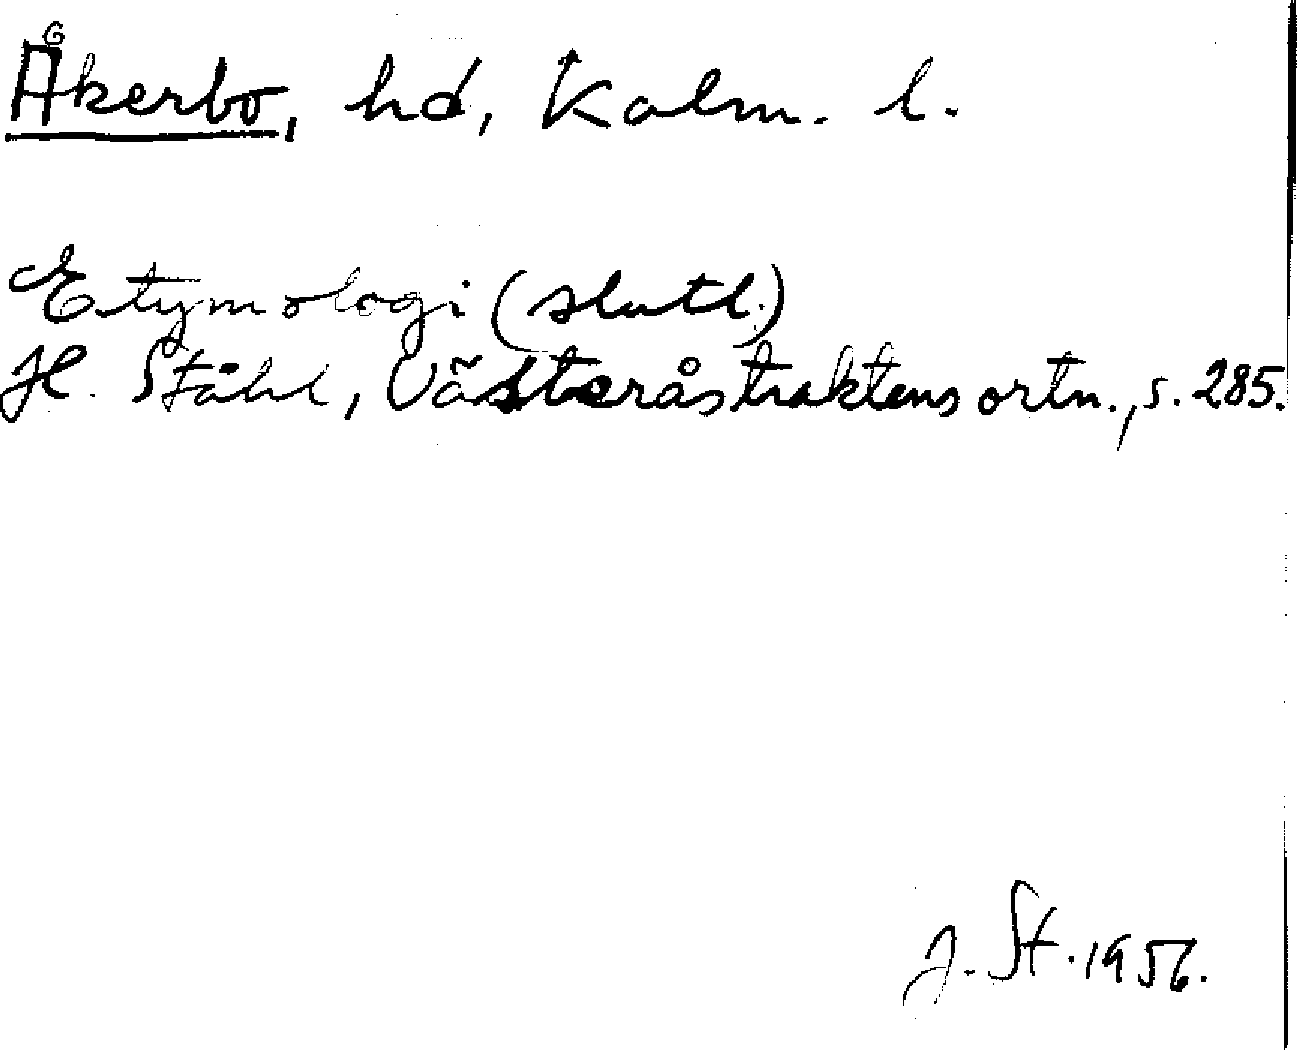 Åkerbo, hd, Kalm. l.
Etymologi (slutl.)
H. Ståhl, Västeråstraktens ortn., s. 285.
J. St. 1956.